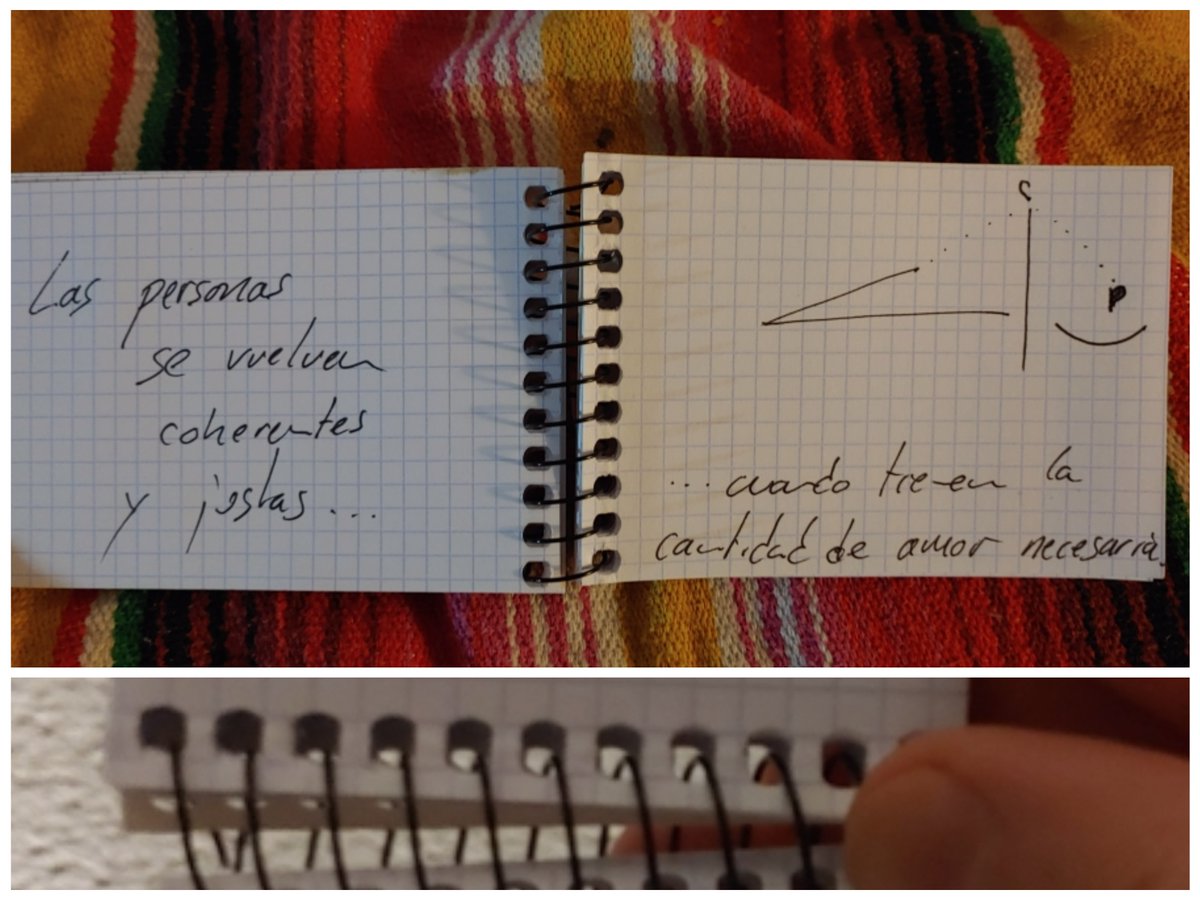 Las personas
se vuelven
coherentes
y justas...
...cuando tienen la
cantidad de amor necesaria.